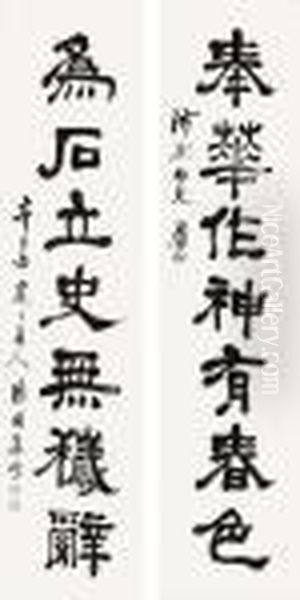 奉華作神有春色
為石立史無穢辭
NiceArtGallery.com